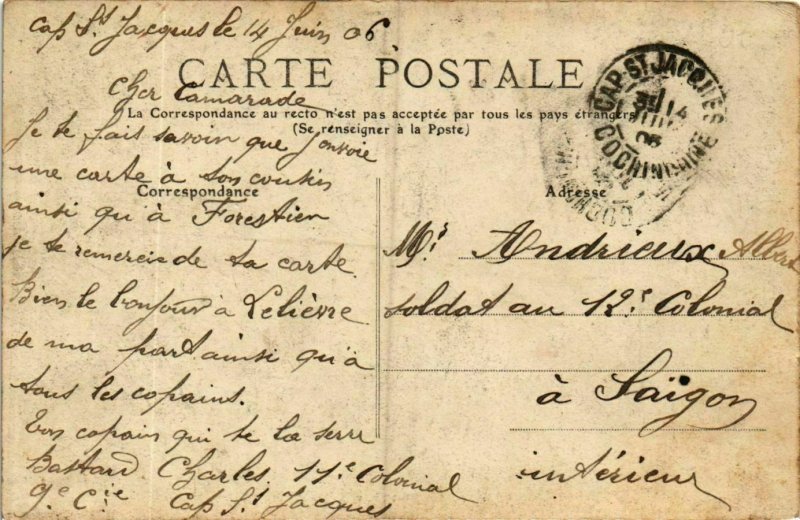 Cap St Jacques le 14 Juin 06
CARTE POSTALE
Cher Camarade
La Correspondance au recto n'est pas acceptée par tous les pays étrangers
(Se renseigner à la Poste)
Je te fais savoir que J'envoie
une carte à ton cousin
Correspondance
ainsi qu'à Forestien
je te remercie de ta carte
Bien le bonjour à Lelièvre
de ma part ainsi qu'à
tous les copains.
Ton copain qui te la serre
Bastard Charles 11e Colonial
9e Cie Cap St Jacques
CAP ST JACQUES
14
COCHINCHINE
Adresse
Mr Andrieux Albert
soldat au 12e Colonial
à Saïgon
intérieur